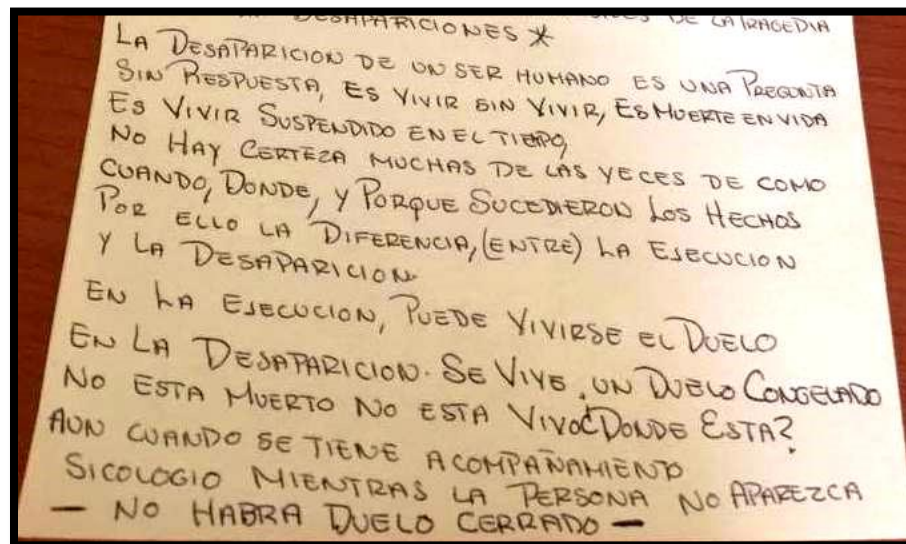 DESAPARICIONES * DE LA TRAGEDIA
LA DESAPARICION DE UN SER HUMANO ES UNA PREGUNTA
SIN RESPUESTA, ES VIVIR SIN VIVIR, ES MUERTE EN VIDA
ES VIVIR SUSPENDIDO EN EL TIEMPO,
NO HAY CERTEZA MUCHAS DE LAS VECES DE COMO
CUANDO, DONDE, Y PORQUE SUCEDIERON LOS HECHOS
POR ELLO LA DIFERENCIA, (ENTRE) LA EJECUCION
Y LA DESAPARICION.
EN LA EJECUCION, PUEDE VIVIRSE EL DUELO
EN LA DESAPARICION. SE VIVE, UN DUELO CONGELADO
NO ESTA MUERTO NO ESTA VIVO ¿DONDE ESTA?
AUN CUANDO SE TIENE ACOMPAÑAMIENTO
SICOLOGIO MIENTRAS LA PERSONA NO APAREZCA
— NO HABRA DUELO CERRADO —